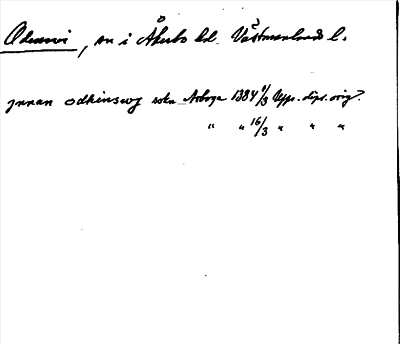 Odensvi, sn i Åkerbo hd. Västmanlands l.
jnnan odhinswj sokn Arboga 1384 1/3 Upps. dipl. orig.
" " 16/3 " " "